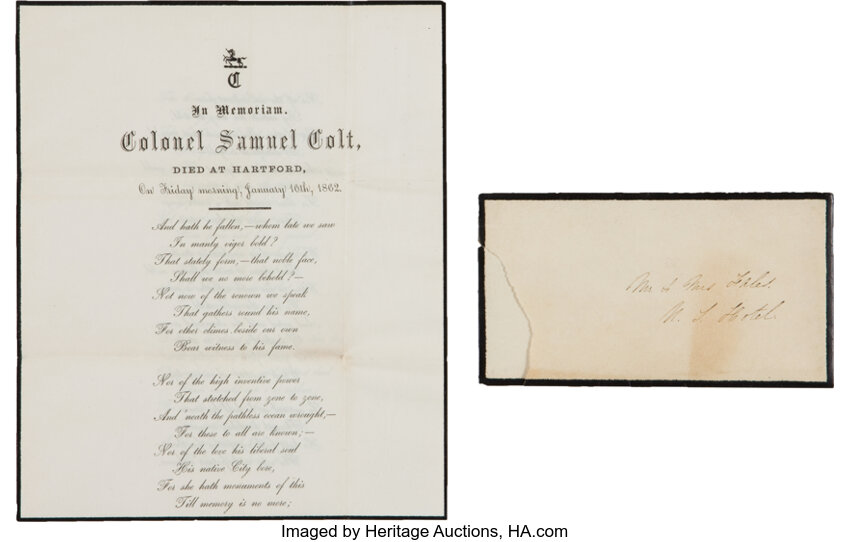 C
In Memoriam.
Colonel Samuel Colt,
DIED AT HARTFORD,
On Friday morning, January 10th, 1862.
And hath he fallen,—whom late we saw
In manly vigor bold?
That stately form,—that noble face,
Shall we no more behold?—
Not now of the renown we speak
That gathers round his name,
For other climes beside our own
Bear witness to his fame.
Nor of the high inventive power
That stretched from zone to zone,
And 'neath the pathless ocean wrought,—
For these to all are known;—
Nor of the love his liberal soul
His native City bore,
For she hath monuments of this
Till memory is no more;
Mr & Mrs Fales.
U. S Hotel.
Imaged by Heritage Auctions, HA.com